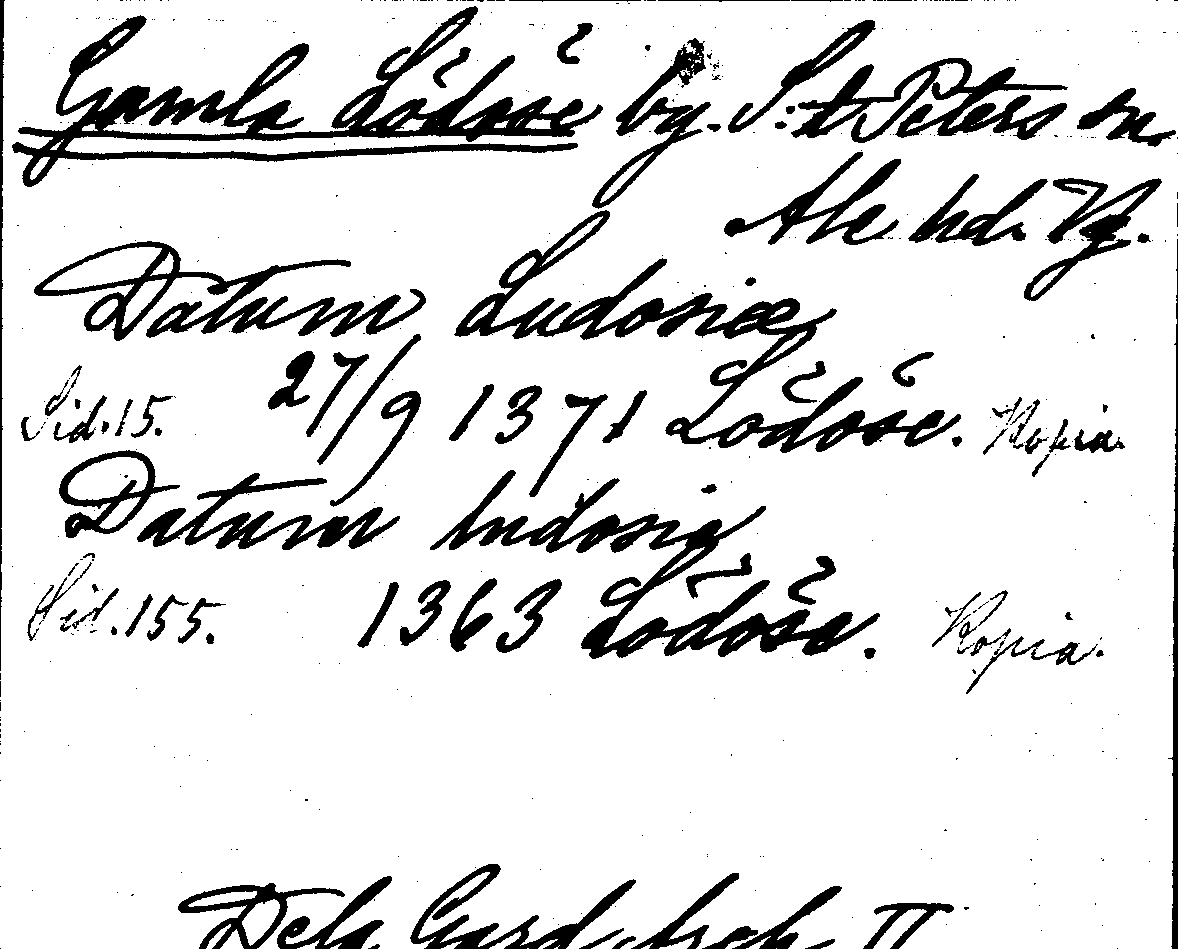 Gamla Lödöse by. S:t Peters sn.
Ale hd. Vg.
Datum Ludosiæ
Sid. 15. 27/9 1371 Lödöse. Kopia.
Datum ludosia
Sid. 155. 1363 Lödöse. Kopia.
Dela Gard. Arch. II